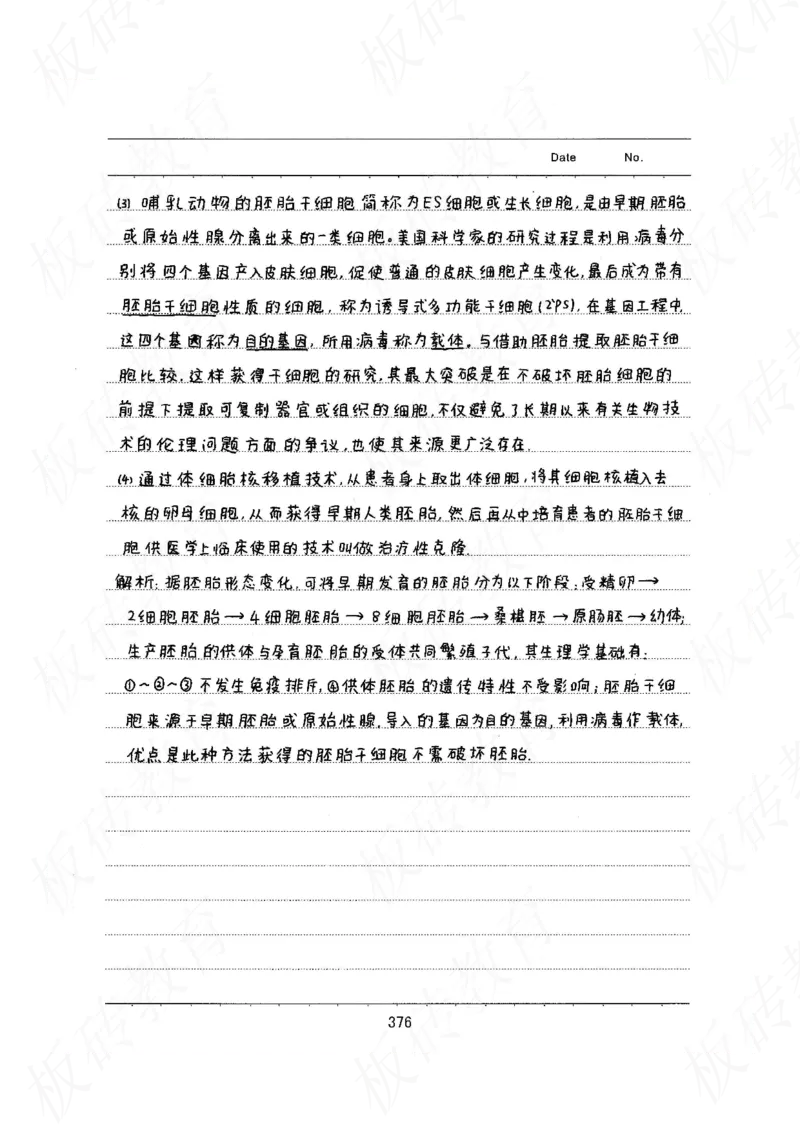 Date No.
(3) 哺乳动物的胚胎干细胞简称为ES细胞或生长细胞,是由早期胚胎
或原始性腺分离出来的一类细胞。美国科学家的研究过程是利用病毒分
别将四个基因产入皮肤细胞,促使普通的皮肤细胞产生变化,最后成为带有
胚胎干细胞性质的细胞,称为诱导式多功能干细胞(iPS),在基因工程中,
这四个基因称为目的基因,所用病毒称为载体。与借助胚胎提取胚胎干细
胞比较,这样获得干细胞的研究,其最大突破是在不破坏胚胎细胞的
前提下提取可复制器官或组织的细胞,不仅避免了长期以来有关生物技
术的伦理问题方面的争议,也使其来源更广泛存在.
(4) 通过体细胞核移植技术,从患者身上取出体细胞,将其细胞核植入去
核的卵母细胞,从而获得早期人类胚胎,然后再从中培育患者的胚胎干细
胞供医学上临床使用的技术叫做治疗性克隆.
解析:据胚胎形态变化,可将早期发育的胚胎分为以下阶段:受精卵→
2细胞胚胎→4细胞胚胎→8细胞胚胎→桑椹胚→原肠胚→幼体;
生产胚胎的供体与孕育胚胎的受体共同繁殖子代,其生理学基础有:
①~②~③不发生免疫排斥,④供体胚胎的遗传特性不受影响;胚胎干细
胞来源于早期胚胎或原始性腺,导入的基因为目的基因,利用病毒作载体,
优点是此种方法获得的胚胎干细胞不需破坏胚胎.
376
板砖教育